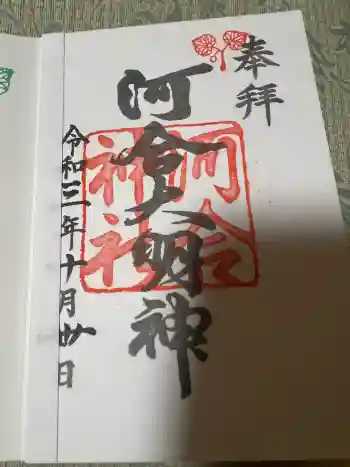 奉拝
河合大明神
河合
神社
令和三年十月廿日